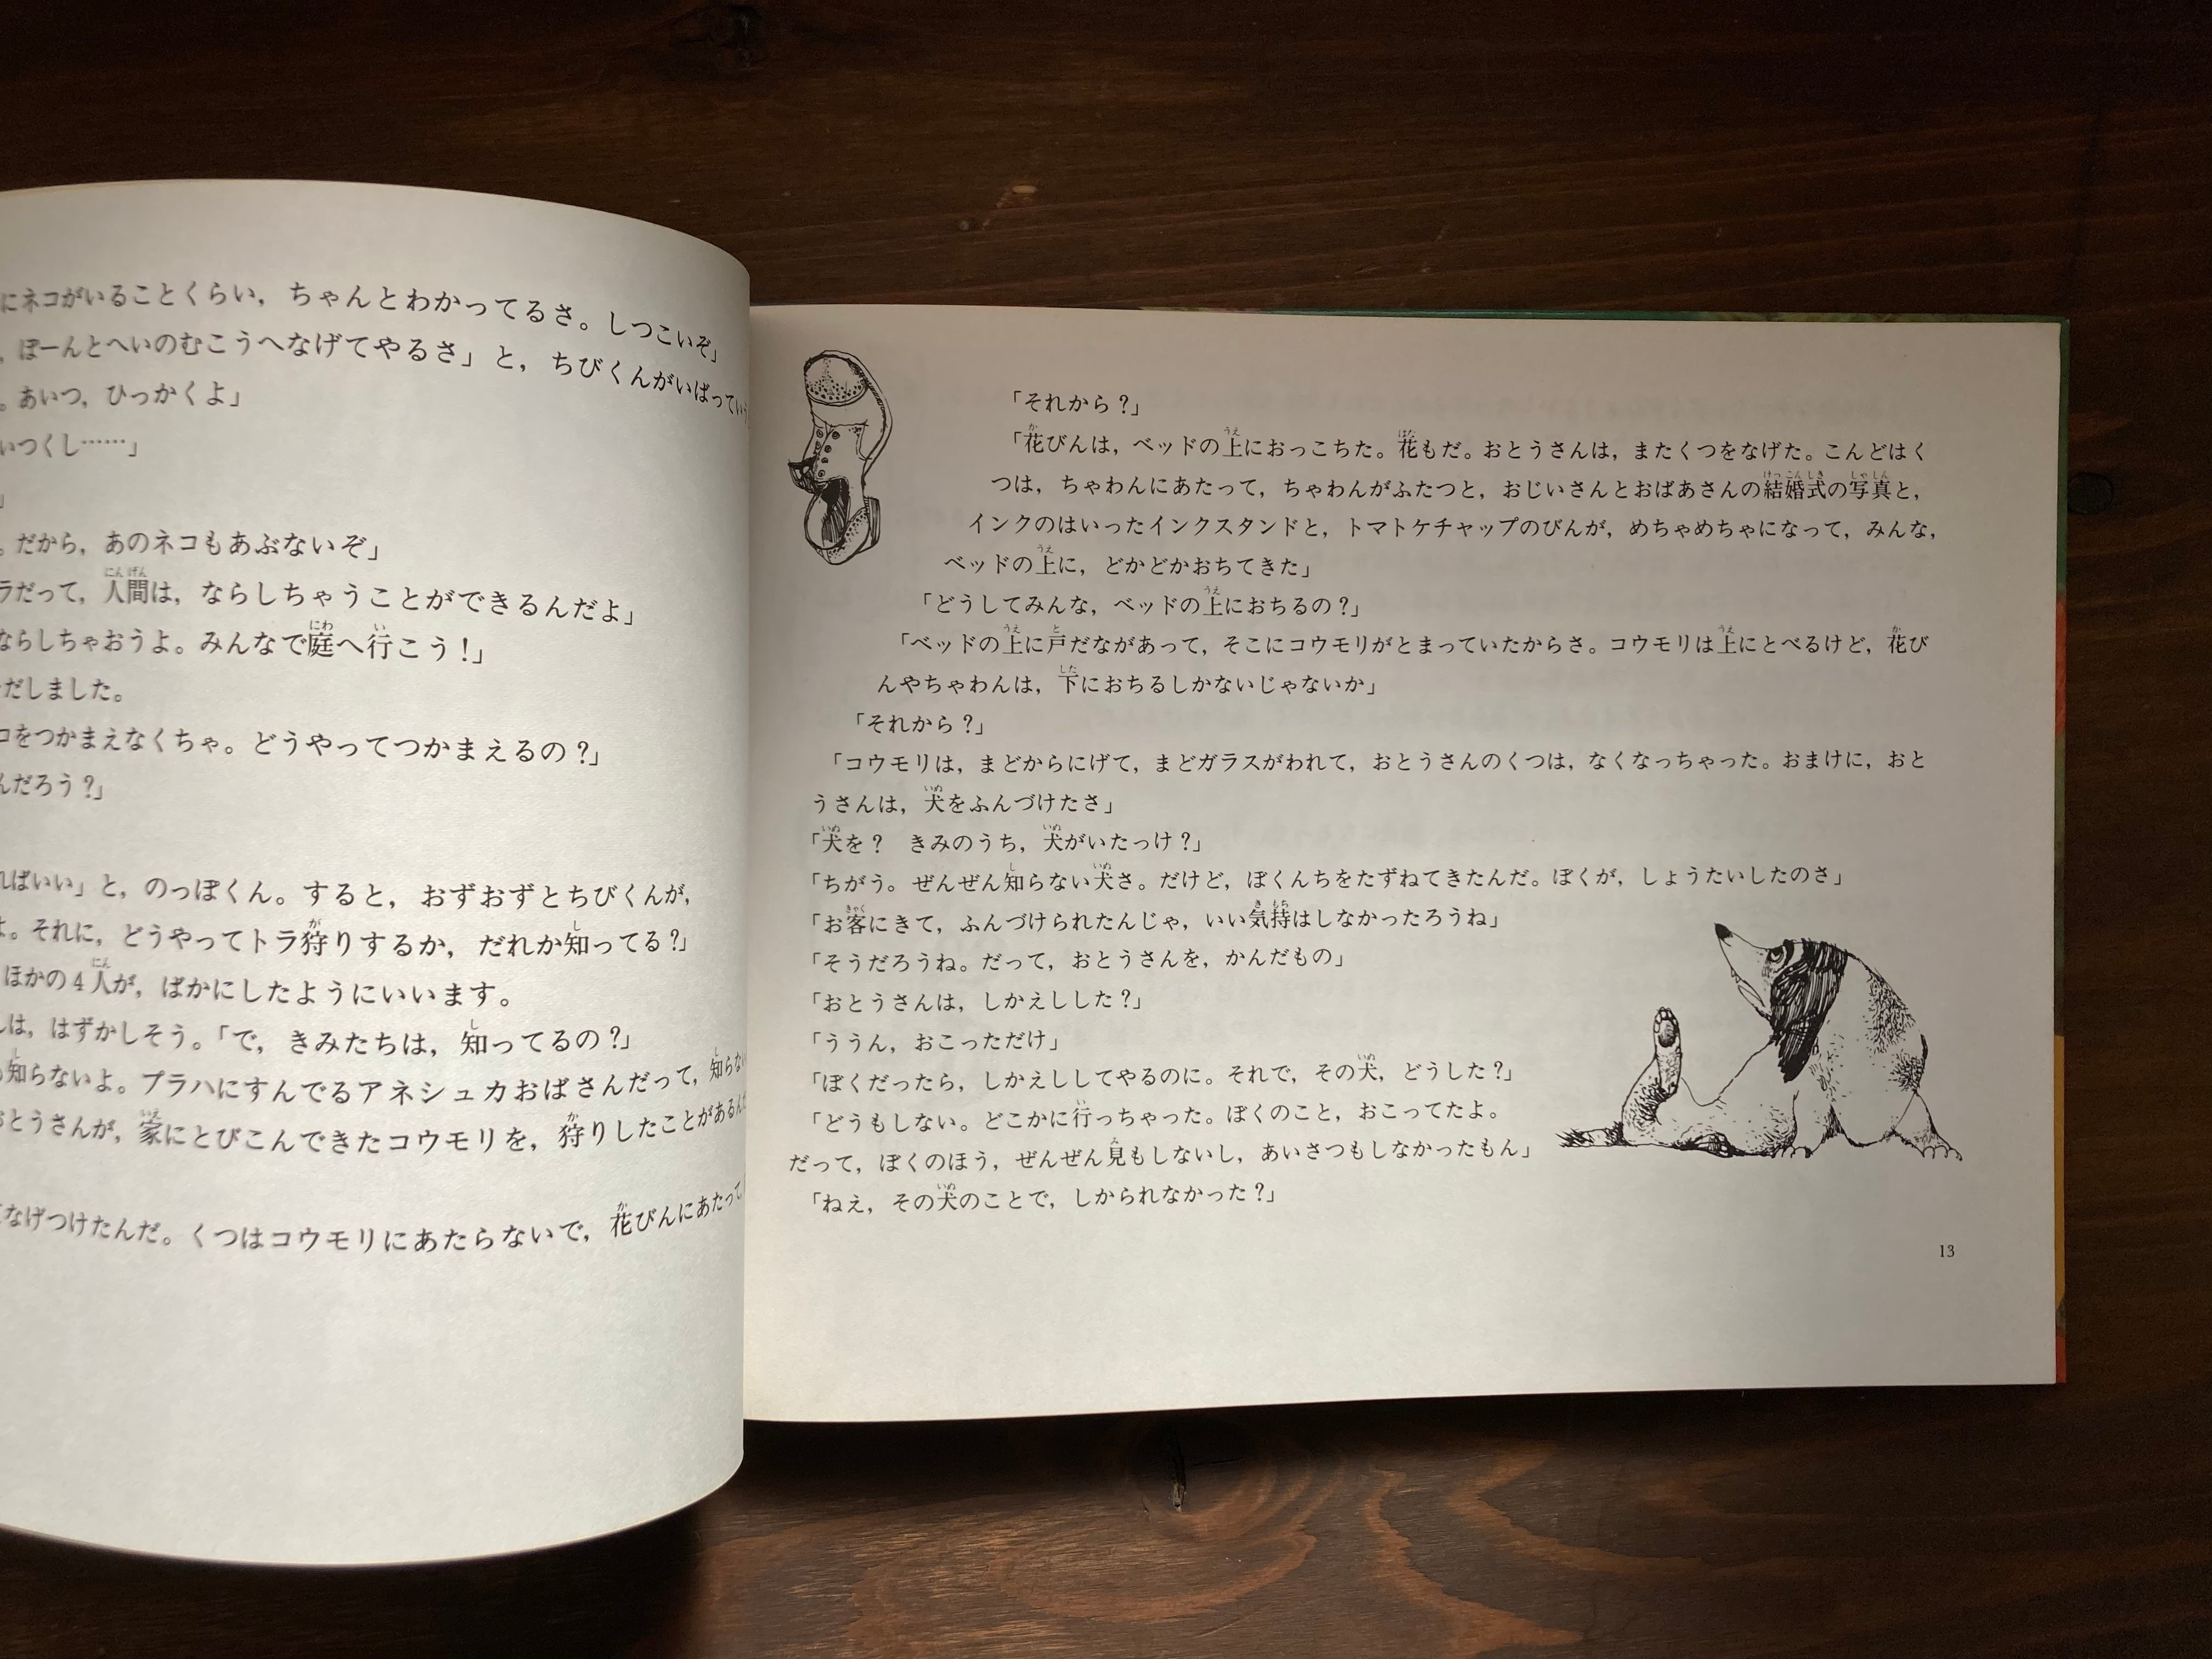 にネコがいることくらい，ちゃんとわかってるさ。しつこいぞ」
，ぽーんとへいのむこうへなげてやるさ」と，ちびくんがいばって
。あいつ，ひっかくよ」
いつくし……」
」
。だから，あのネコもあぶないぞ」
ラだって，人間は，ならしちゃうことができるんだよ」
ならしちゃおうよ。みんなで庭へ行こう！」
だしました。
コをつかまえなくちゃ。どうやってつかまえるの？」
んだろう？」
ればいい」と，のっぽくん。すると，おずおずとちびくんが，
よ。それに，どうやってトラ狩りするか，だれか知ってる？」
ほかの4人が，ばかにしたようにいいます。
は，はずかしそう。「で，きみたちは，知ってるの？」
知らないよ。プラハにすんでるアネシュカおばさんだって，知らな
おとうさんが，家にとびこんできたコウモリを，狩りしたことがあるん
なげつけたんだ。くつはコウモリにあたらないで，花びんにあたって
「それから？」
「花びんは，ベッドの上におっこちた。花もだ。おとうさんは，またくつをなげた。こんどはく
つは，ちゃわんにあたって，ちゃわんがふたつと，おじいさんとおばあさんの結婚式の写真と，
インクのはいったインクスタンドと，トマトケチャップのびんが，めちゃめちゃになって，みんな，
ベッドの上に，どかどかおちてきた」
「どうしてみんな，ベッドの上におちるの？」
「ベッドの上に戸だながあって，そこにコウモリがとまっていたからさ。コウモリは上にとべるけど，花び
んやちゃわんは，下におちるしかないじゃないか」
「それから？」
「コウモリは，まどからにげて，まどガラスがわれて，おとうさんのくつは，なくなっちゃった。おまけに，おと
うさんは，犬をふんづけたさ」
「犬を？　きみのうち，犬がいたっけ？」
「ちがう。ぜんぜん知らない犬さ。だけど，ぼくんちをたずねてきたんだ。ぼくが，しょうたいしたのさ」
「お客にきて，ふんづけられたんじゃ，いい気持はしなかったろうね」
「そうだろうね。だって，おとうさんを，かんだもの」
「おとうさんは，しかえしした？」
「ううん，おこっただけ」
「ぼくだったら，しかえししてやるのに。それで，その犬，どうした？」
「どうもしない。どこかに行っちゃった。ぼくのこと，おこってたよ。
だって，ぼくのほう，ぜんぜん見もしないし，あいさつもしなかったもん」
「ねえ，その犬のことで，しかられなかった？」
13